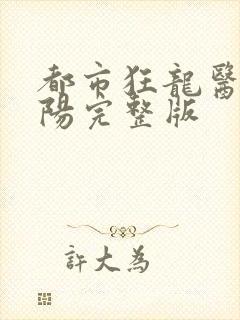 都市狂龍醫
陽完整版
許大為